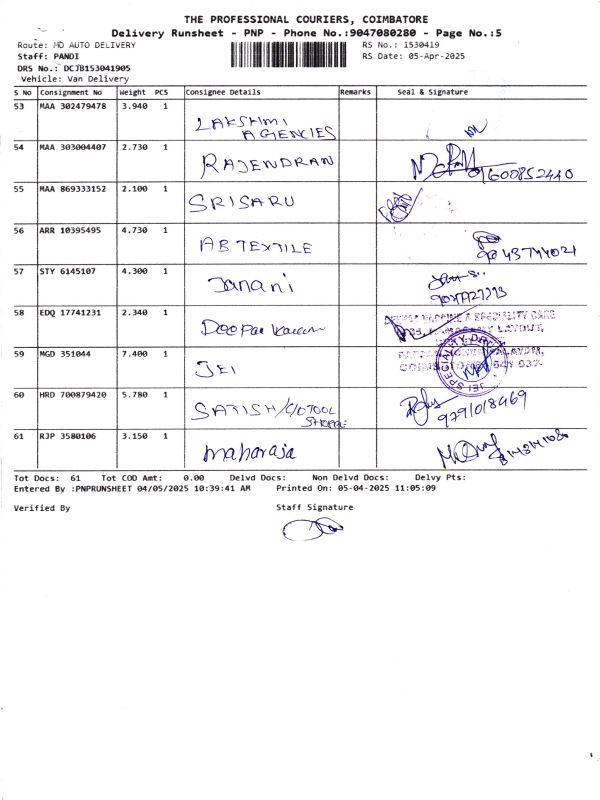 THE PROFESSIONAL COURIERS, COIMBATORE
Delivery Runsheet - PNP - Phone No.:9047080280 - Page No.:5
Route: MD AUTO DELIVERY
RS No.: 1530419
Staff: PANDI
RS Date: 05-Apr-2025
DRS No.: DCJB153041905
Vehicle: Van Delivery
S No Consignment No Weight PCS Consignee Details Remarks Seal & Signature
53 MAA 302479478 3.940 1
LAKSHMI
AGENCIES
54 MAA 303004407 2.730 1
RAJENDRAN
9600852440
55 MAA 869333152 2.100 1
SRISARU
56 ARR 10395495 4.730 1
ABTEXTILE
9043744021
57 STY 6145107 4.300 1
Janani
58 EDQ 17741231 2.340 1
Deepak
VACCINE & SPECIALITY CARE
LAYOUT,
59 MGD 351044 7.400 1
JEI
JEI SPECIALITY
60 HRD 700879420 5.780 1
SATISH/C/O TOOL
SHOPPE
9791018469
61 RJP 3580106 3.150 1
maharaja
Tot Docs: 61 Tot COD Amt: 0.00 Delvd Docs: Non Delvd Docs: Delvy Pts:
Entered By :PNPRUNSHEET 04/05/2025 10:39:41 AM Printed On: 05-04-2025 11:05:09
Verified By Staff Signature